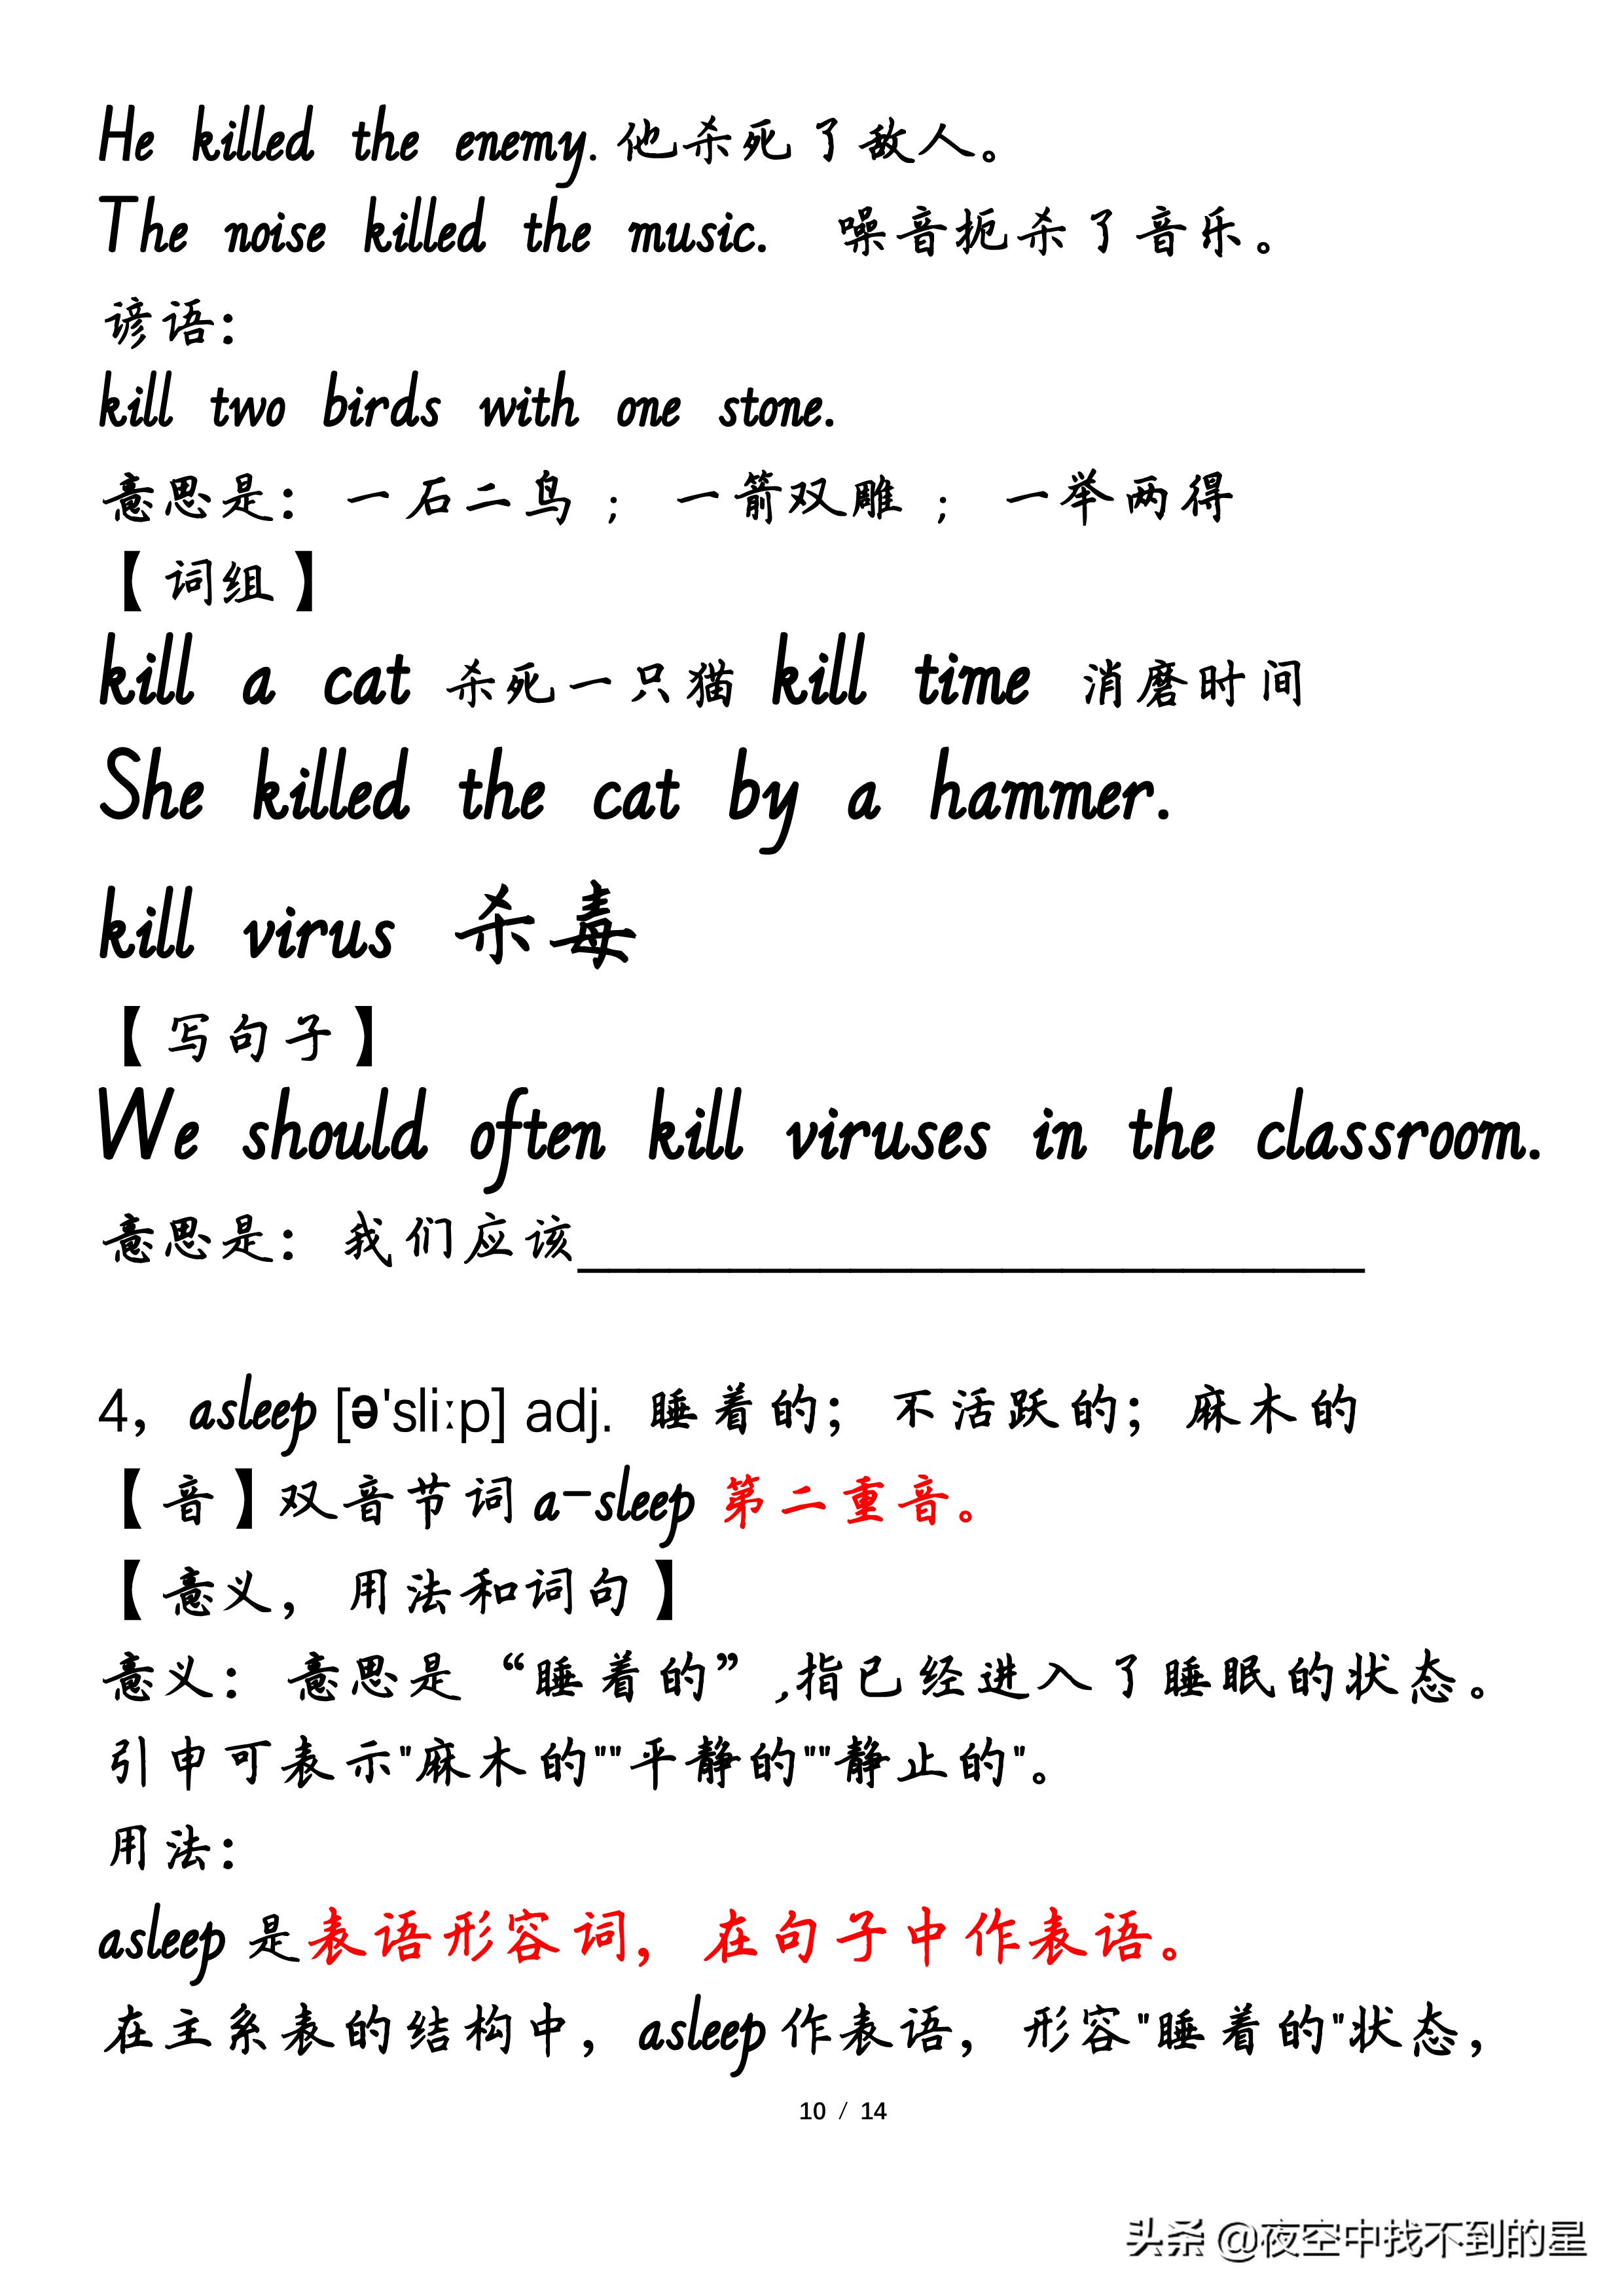 He killed the enemy. 他杀死了敌人。
The noise killed the music. 噪音扼杀了音乐。
谚语：
kill two birds with one stone.
意思是：一石二鸟 ；一箭双雕 ；一举两得
【词组】
kill a cat 杀死一只猫 kill time 消磨时间
She killed the cat by a hammer.
kill virus 杀毒
【写句子】
We should often kill viruses in the classroom.
意思是：我们应该__________________________
4，asleep [ə'sliːp] adj. 睡着的；不活跃的；麻木的
【音】双音节词 a-sleep 第二重音。
【意义，用法和词句】
意义：意思是“睡着的”,指已经进入了睡眠的状态。
引申可表示"麻木的""平静的""静止的"。
用法：
asleep 是表语形容词，在句子中作表语。
在主系表的结构中，asleep 作表语，形容"睡着的"状态，
10 / 14
头条 @夜空中找不到的星